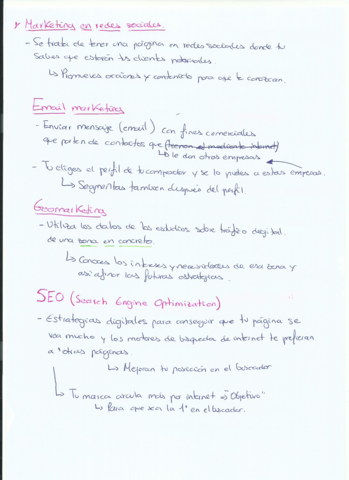 Marketing en redes sociales.
- Se trata de tener una página en redes sociales donde tu
sabes que estarán tus clientes potenciales.
↳ Promueves acciones y contenido para que te conozcan.
Email marketing
- Enviar mensaje (email) con fines comerciales
que parten de contactos que (tienen el mediante internet)
↳ le dan otras empresas
- Tu eliges el perfil de tu comprador y se lo pides a estas empresas.
↳ Segmentas tambien después del perfil.
Geomarketing
- Utiliza los datos de los estudios sobre tráfico digital
de una zona en concreto.
↳ Conoces los intereses y necesidades de esa zona y
asi afinar las futuras estrategias.
SEO (Search Engine Optimization)
- Estrategias digitales para conseguir que tu página se
vea mucho y los motores de búsquedas de internet te prefieran
a otras páginas.
↳ Mejoran tu posición en el buscador
↳ Tu marca circula más por internet ⇒ "Objetivo"
↳ Para que sea la 1ª en el buscador.